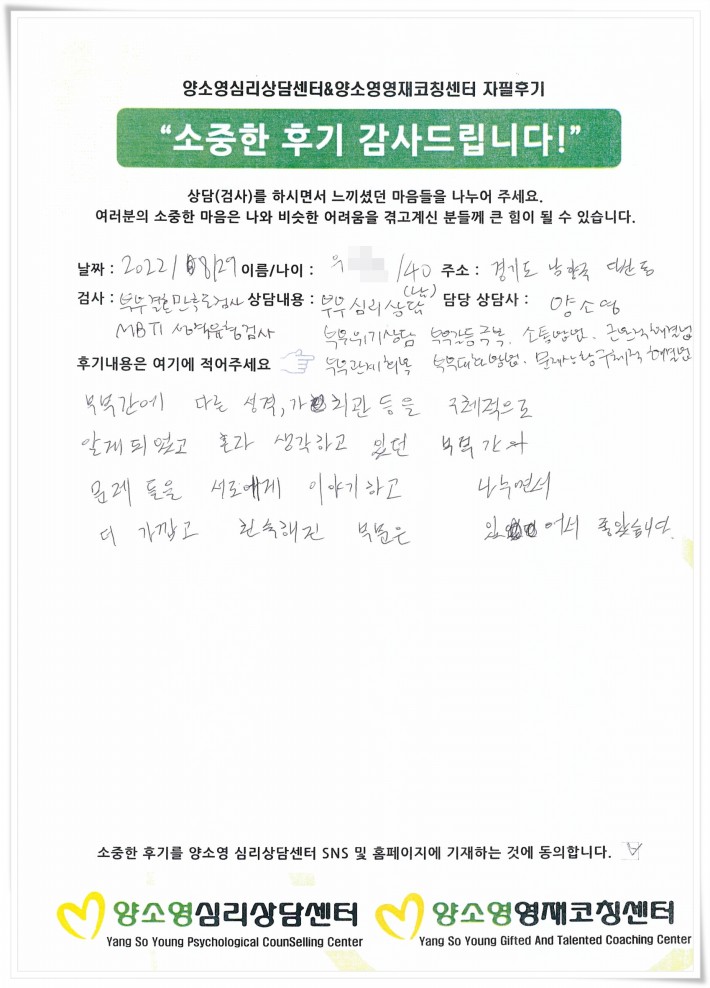 양소영심리상담센터&양소영영재코칭센터 자필후기
“소중한 후기 감사드립니다!”
상담(검사)를 하시면서 느끼셨던 마음들을 나누어 주세요.
여러분의 소중한 마음은 나와 비슷한 어려움을 겪고계신 분들께 큰 힘이 될 수 있습니다.
날짜 : 2022/08/29 이름/나이 : 우 /40 주소 : 경기도
(남)
검사 : 부부결혼만족도검사 상담내용 : 부부심리상담 담당 상담사 : 양소영
MBTI 성격유형검사 부부위기상담 부부갈등극복. 소통방법. 근본적해결법
후기내용은 여기에 적어주세요 부부관계회복 부부대화방법. 문제상황구체적해결법
부부간에 다른 성격, 가치관 등을 구체적으로
알게되었고 혼자 생각하고 있던 부부간의
문제 들을 서로에게 이야기하고 나누면서
더 가깝고 친숙해진 부분은 있어서 좋았습니다.
소중한 후기를 양소영 심리상담센터 SNS 및 홈페이지에 기재하는 것에 동의합니다.
양소영심리상담센터 양소영영재코칭센터
Yang So Young Psychological CounSelling Center Yang So Young Gifted And Talented Coaching Center